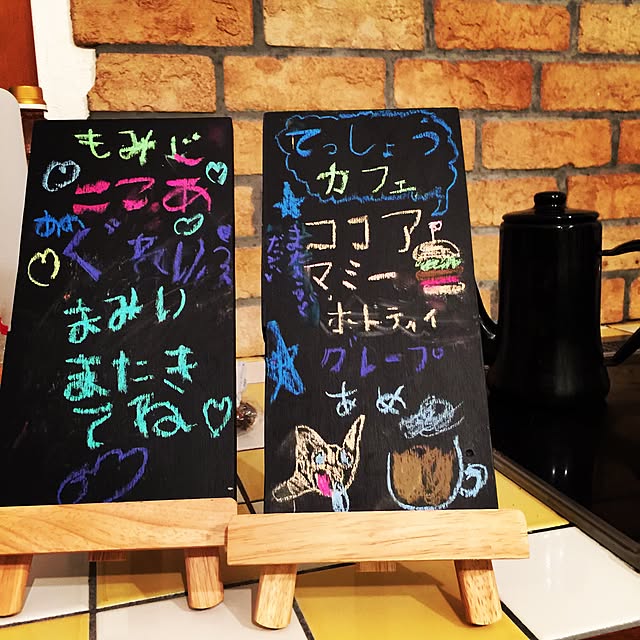 もみじ
ここあ
あめ
ぐれいぷ
まみい
またき
てね
てっしょう
カフェ
ココア
マミー
ホートティイ
グレープ
あめ